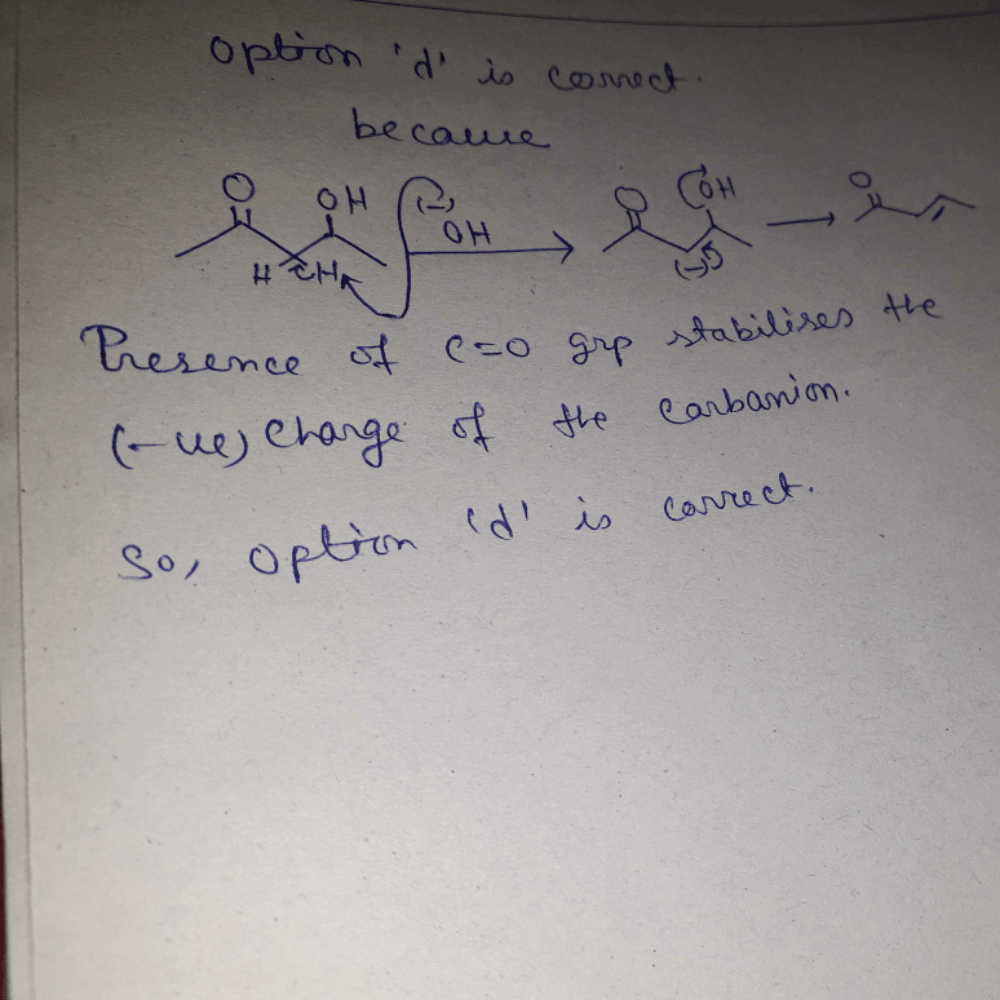 Option 'd' is correct.
because
O OH (-) OH O OH O
H H (-)
Presence of C=O grp stabilises the
(-ve) Charge of the Carbanion.
So, Option 'd' is correct.